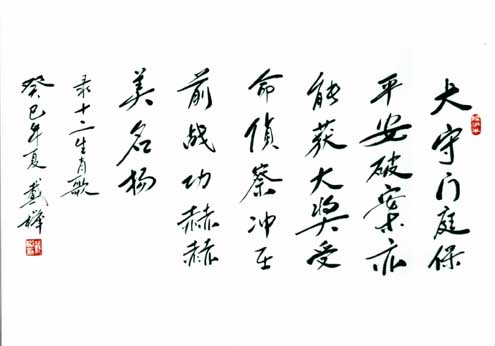 犬守门庭保
平安破案亦
能获大奖受
命偵察冲在
前战功赫赫
美名扬
录十二生肖歌
癸巳年夏 戴